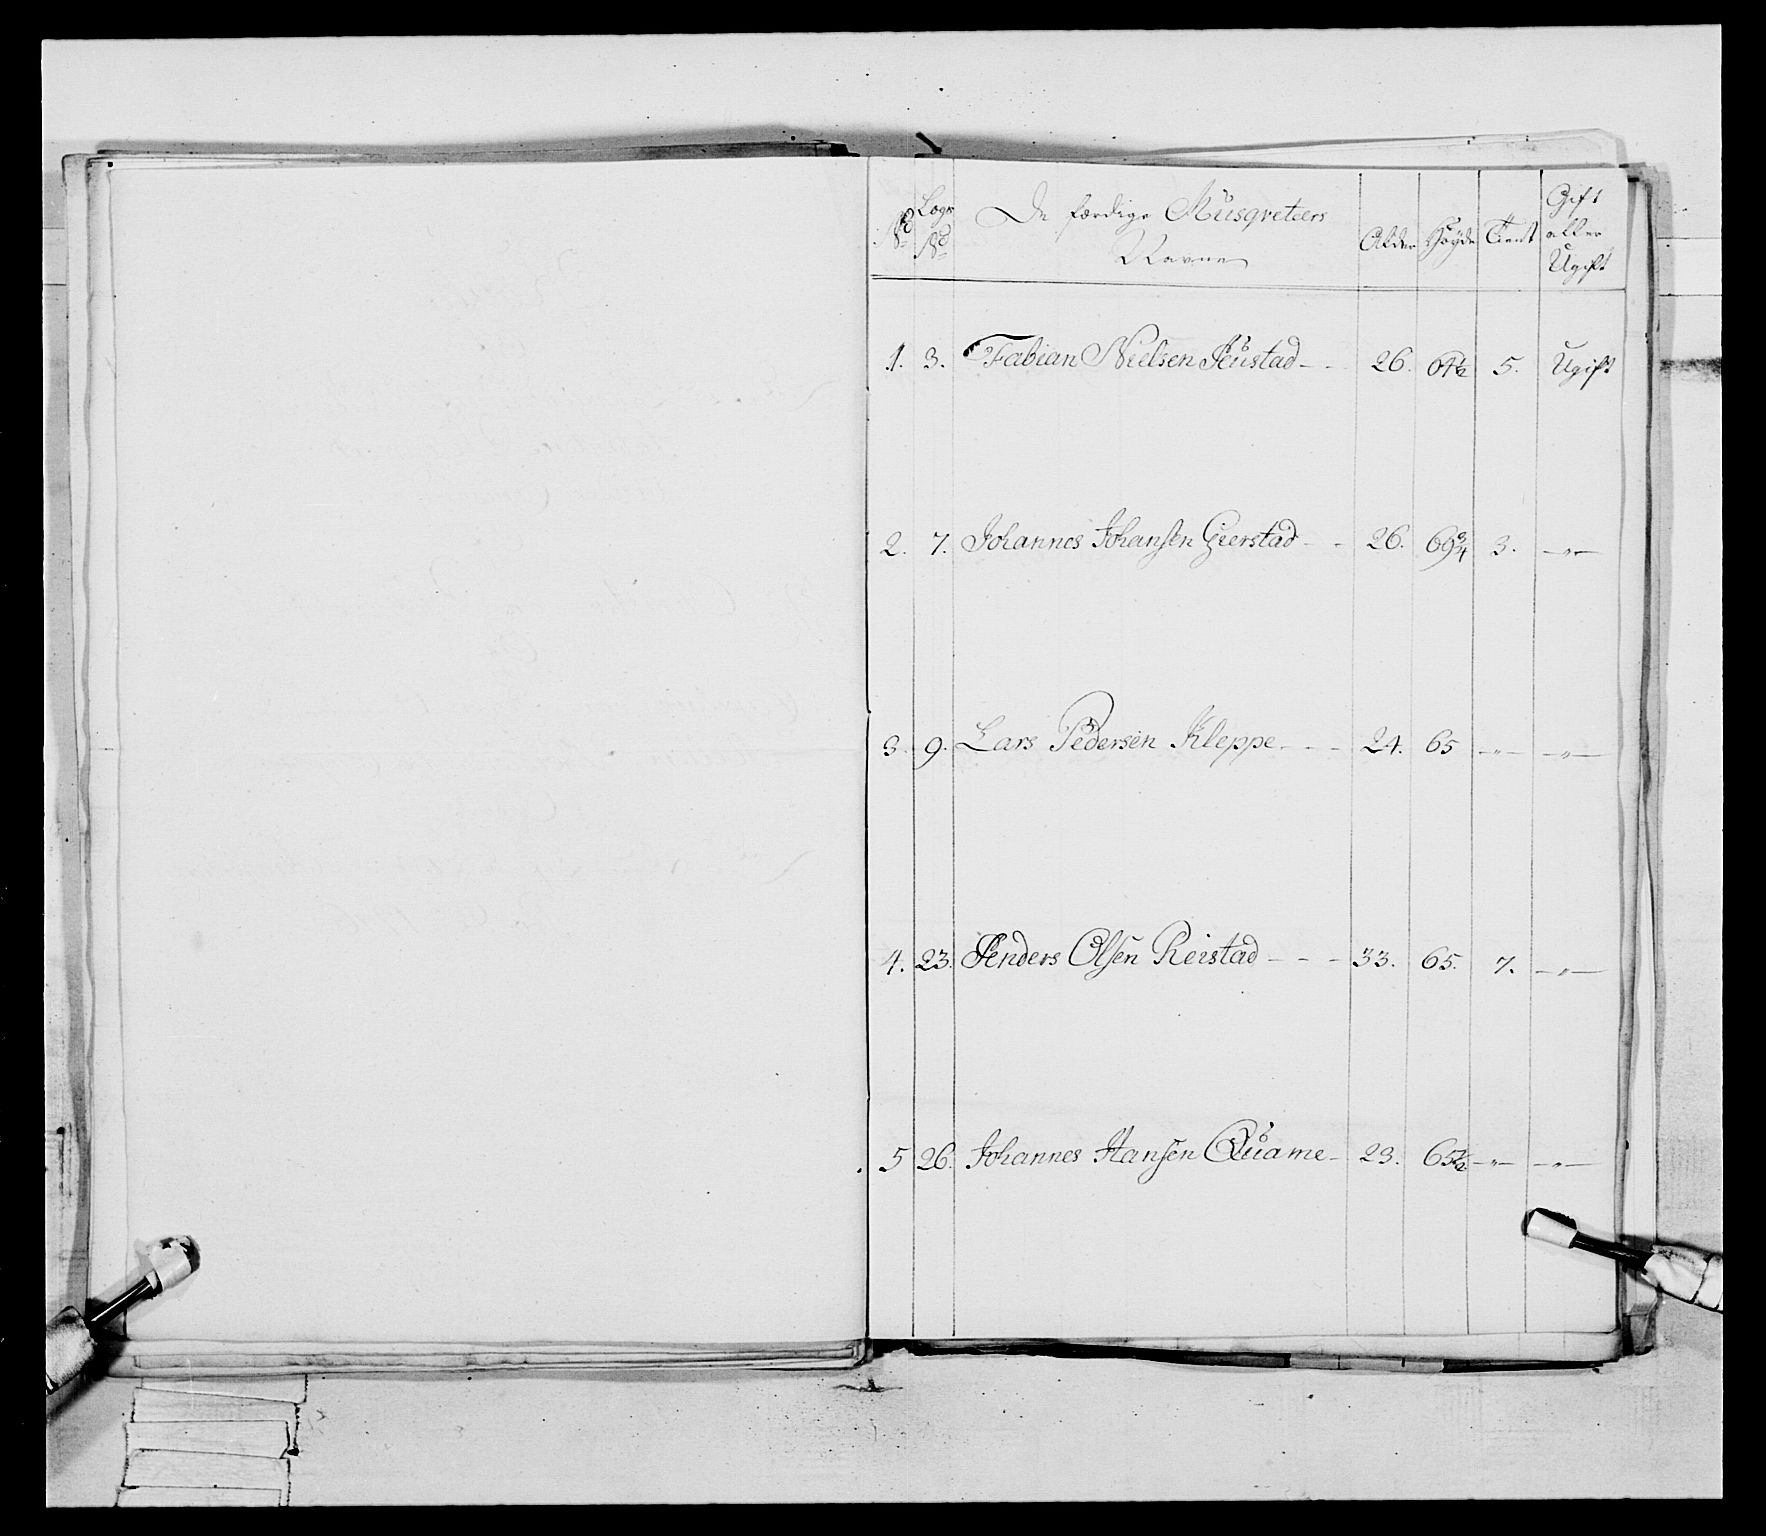 No Logs No De færdige Musqveteers Navne Alder Høyde Tient Gift eller Ugift
1. 3. Fabian Nielsen Aeustad - - 26. 64½ 5. Ugift
2. 7. Johannes Johansen Gierstad - - 26. 69¾ 3. —„—
3. 9. Lars Pedersen Kleppe - - - 24. 65 —„— —„—
4. 23. Anders Olsen Reistad - - - 33. 65. 7. —„—
5 26. Johannes Hansen Quame - 23. 65½ —„— —„—